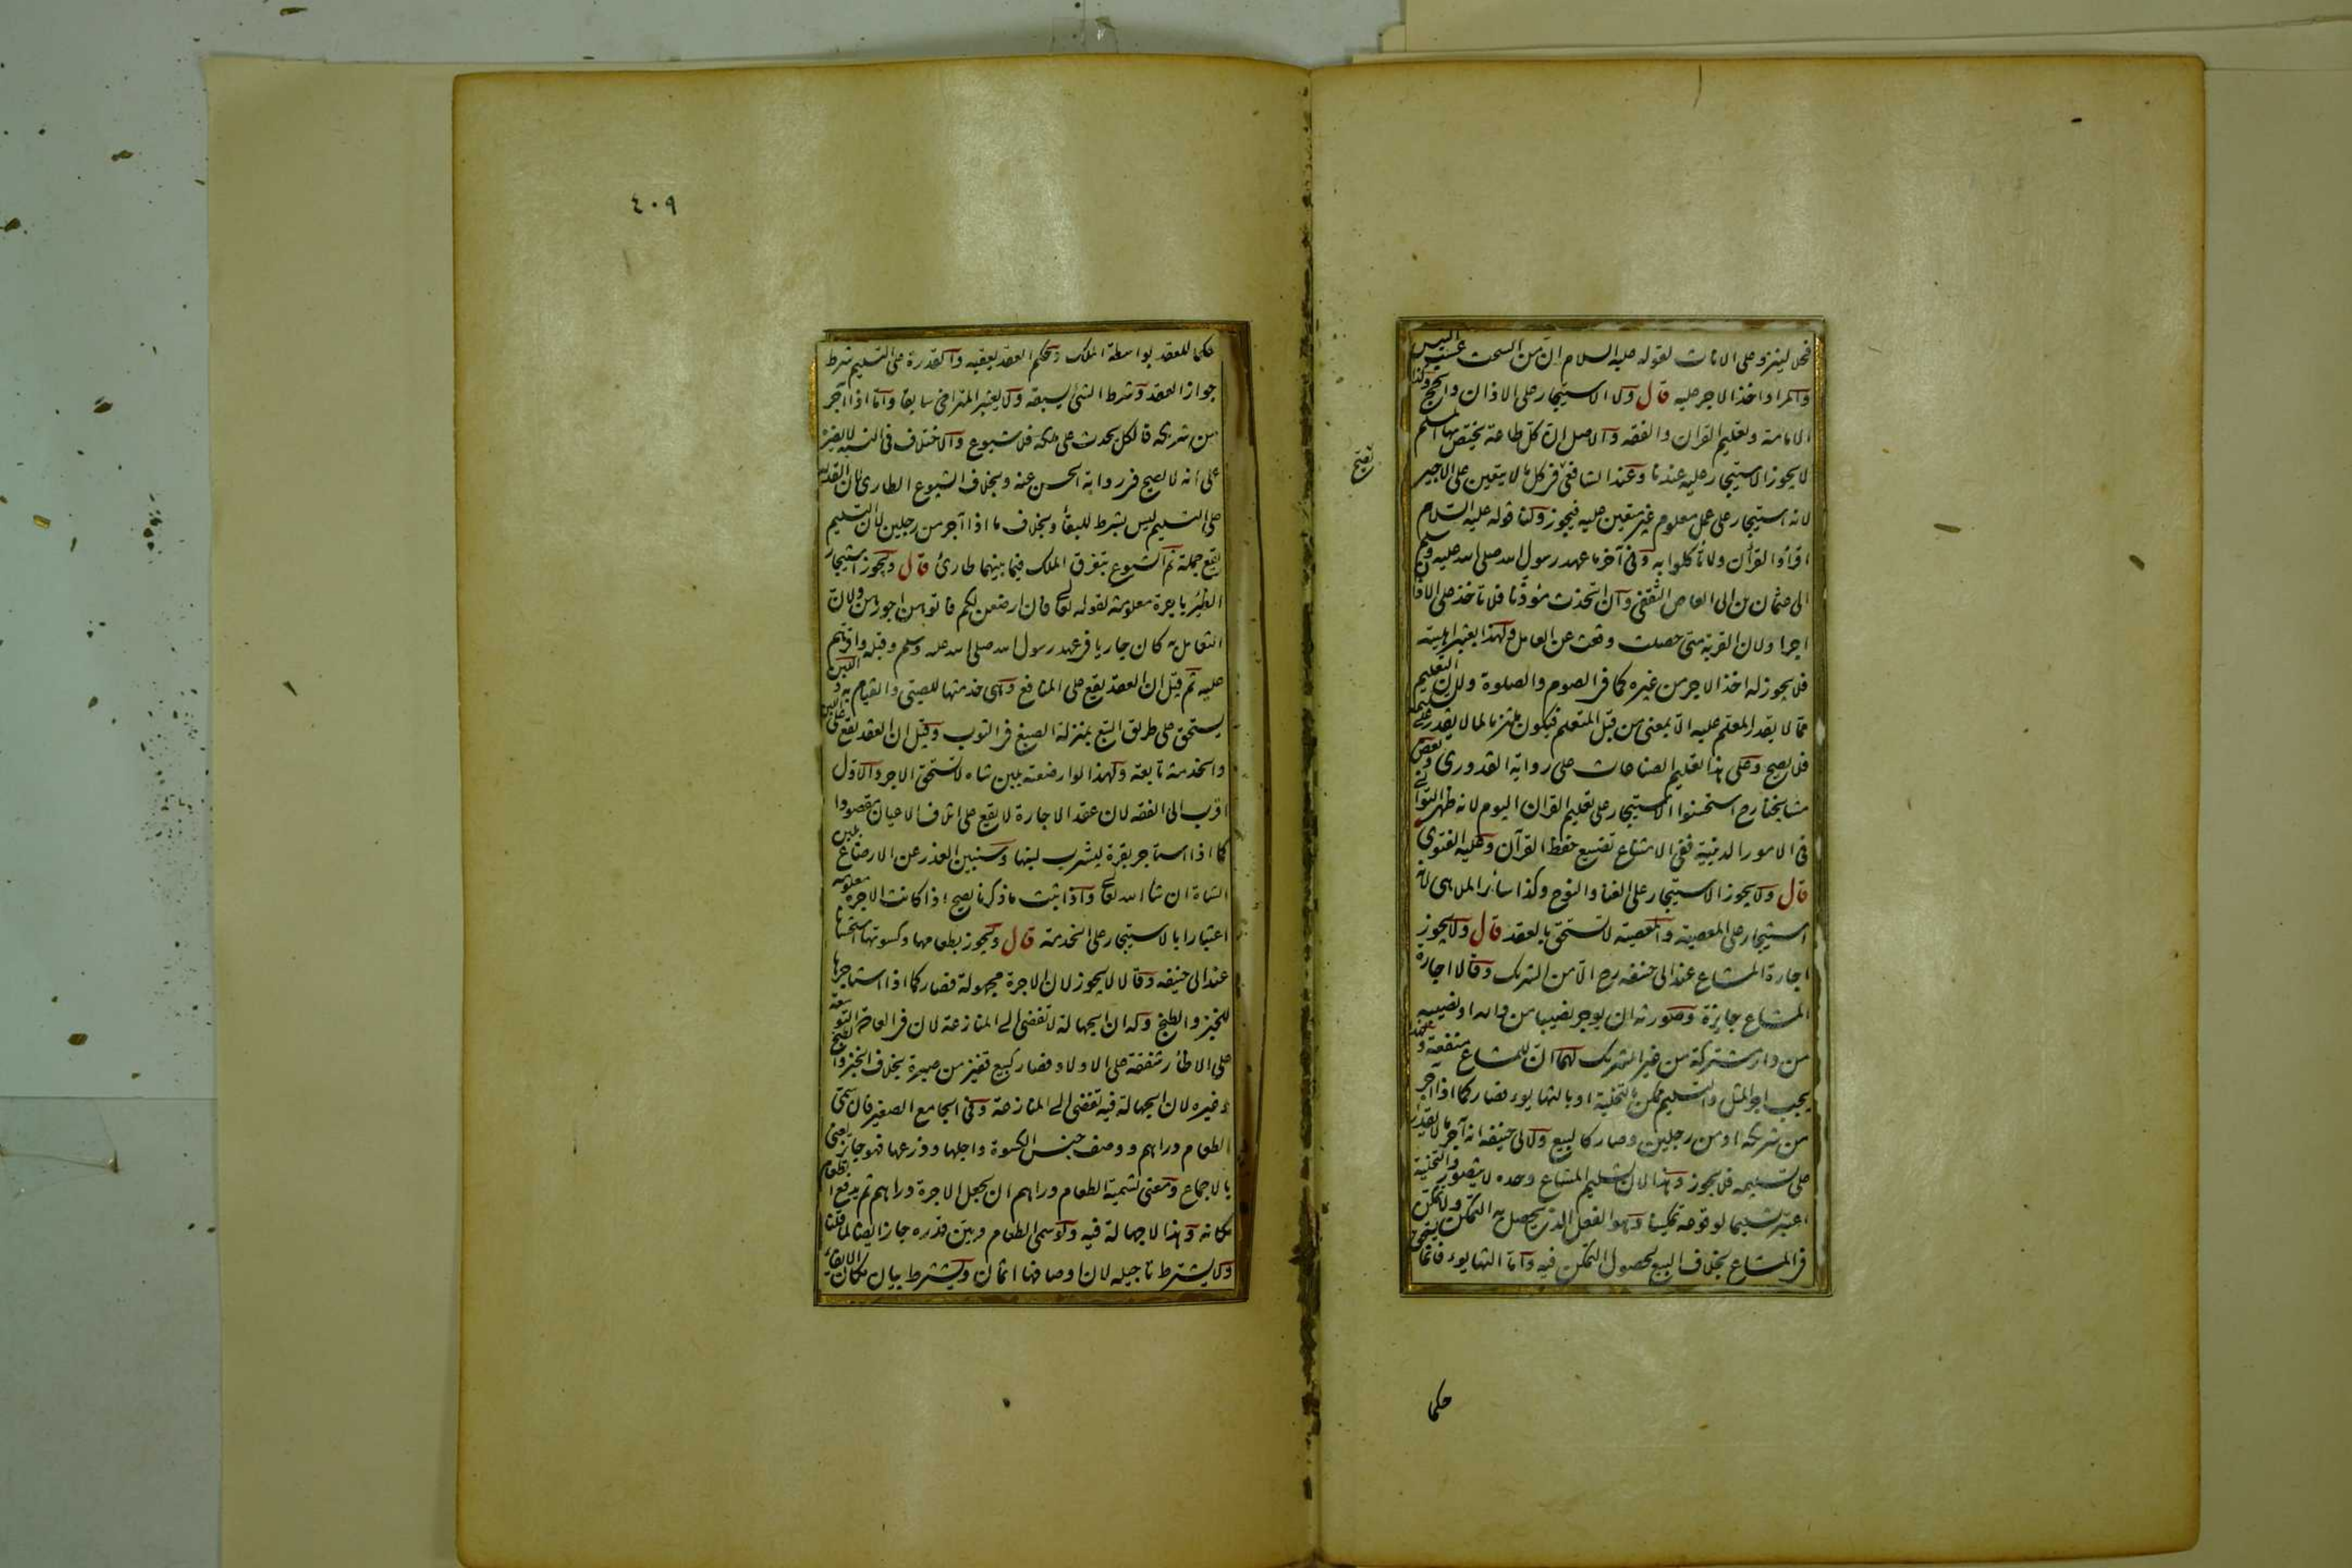 فحل لينزو على الاناث لقوله عليه السلام ان من السحت عسب التيس
والمراد اخذ الاجر عليه قال ولا الاستيجار على الاذان والحج وكذا
الامامة وتعليم القران والفقه والاصل ان كل طاعة يختص بها المسلم
لا يجوز الاستيجار عليه عندنا وعند الشافعي في كل ما لا يتعين على الاجير
لانه استيجار على عمل معلوم غير متعين عليه فيجوز ولنا قوله عليه السلام
اقرأوا القرأن ولا تأكلوا به وفي آخر ما عهد رسول الله صلى الله عليه وسلم
الى عثمان بن ابى العاص الثقفى وان اتخذت مؤذنا فلا تاخذ على الاذان
اجرا ولان القربة متى حصلت وقعت عن العامل ولهذا يعتبر اهليته
فلا يجوز له اخذ الاجر من غيره كما في الصوم والصلوة ولان التعليم
مما لا يقدر المعلم عليه الا بمعنى من قبل المتعلم فيكون ملتزما لما لا يقدر على تسليمه
فلا يصح وعلى هذا تعليم الصناعات على رواية القدورى وبعض
مشايخنا رح استحسنوا الاستيجار على تعليم القران اليوم لانه ظهر التوانى
فى الامور الدينية ففى الامتناع تضييع حفظ القرآن وعليه الفتوى
قال ولا يجوز الاستيجار على الغنا والنوح وكذا سائر الملاهى لانه
استيجار على المعصية والمعصية لا تستحق بالعقد قال ولا يجوز
اجارة المشاع عند ابى حنيفه رح الا من الشريك وقالا اجارة
المشاع جايزة وصورته ان يوجر نصيبا من داره او نصيبه
من دار مشتركة من غير الشريك لهما ان للمشاع منفعة ولهذا
يجب اجر المثل والتسليم ممكن بالتخلية او بالتهايوء فصار كما اذا آجر
من شريكه او من رجلين وصار كالبيع ولابى حنيفه انه آجر ما لا يقدر
على تسليمه فلا يجوز وهذا لان تسليم المشاع وحده لا يتصور والتخلية
اعتبر تسليما لوقوعه تمكينا وهو الفعل الذى يحصل به التمكن ولا تمكن
في المشاع بخلاف البيع لحصول التمكن فيه واما التهايوء فانما يستحق
حكما
حكما للعقد بواسطة الملك وحكم العقد يعقبه والقدرة على التسليم شرط
جواز العقد وشرط الشئ يسبقه ولا يعتبر المتراخى سابقا واما اذا آجر
من شريكه فالكل يحدث على ملكه فلا شيوع والاختلاف فى النسبة لا يضره
على انه لا يصح في رواية الحسن عنه وبخلاف الشيوع الطارى لان القدرة
على التسليم ليس بشرط للبقأ وبخلاف ما اذا آجر من رجلين لان التسليم
يقع جملة ثم الشيوع بتفرق الملك فيما بينهما طارئ قال ويجوز استيجار
الظئر باجرة معلومة لقوله تعالى فان ارضعن لكم فآتوهن اجورهن ولان
التعامل به كان جاريا في عهد رسول الله صلى الله عليه وسلم وقبله واقرهم
عليه ثم قيل ان العقد يقع على المنافع وهى خدمتها للصبى والقيام به واللبن
يستحق على طريق التبع بمنزلة الصبغ في الثوب وقيل ان العقد يقع على اللبن
والخدمة تابعة ولهذا لو ارضعته بلبن شاه لا تستحق الاجر والاول
اقرب الى الفقه لان عقد الاجارة لا يقع على اتلاف الاعيان مقصودا
كما اذا استاجر بقرة ليشرب لبنها وسنبين العذر عن الارضاع بلبن
الشاة ان شا الله تعالى واذا ثبت ما ذكرنا يصح اذا كانت الاجرة معلومه
اعتبارا بالاستيجار على الخدمة قال ويجوز بطعامها وكسوتها استحسانا
عند ابى حنيفه وقالا لا يجوز لان الاجرة مجهولة فصار كما اذا استاجرها
للخبز والطبخ وله ان الجهالة لا تفضى الى المنازعة لان في العادة التوسعة
على الاظآر شفقة على الاولاد فصار كبيع قفيز من صبرة بخلاف الخبز والطبخ
وغيره لان الجهالة فيه تفضى الى المنازعة وفى الجامع الصغير فان سمى
الطعام دراهم ووصف جنس الكسوة واجلها وذرعها فهو جائز يعنى
بالاجماع ومعنى تسمية الطعام دراهم ان يجعل الاجرة دراهم ثم يدفع الطعام
مكانه وهذا لا جهالة فيه ولو سمى الطعام وبين قدره جاز ايضا لما قلنا
ولا يشترط تاجيله لان اوصافها اثمان ويشترط بيان مكان الايفاء
٤٠٩